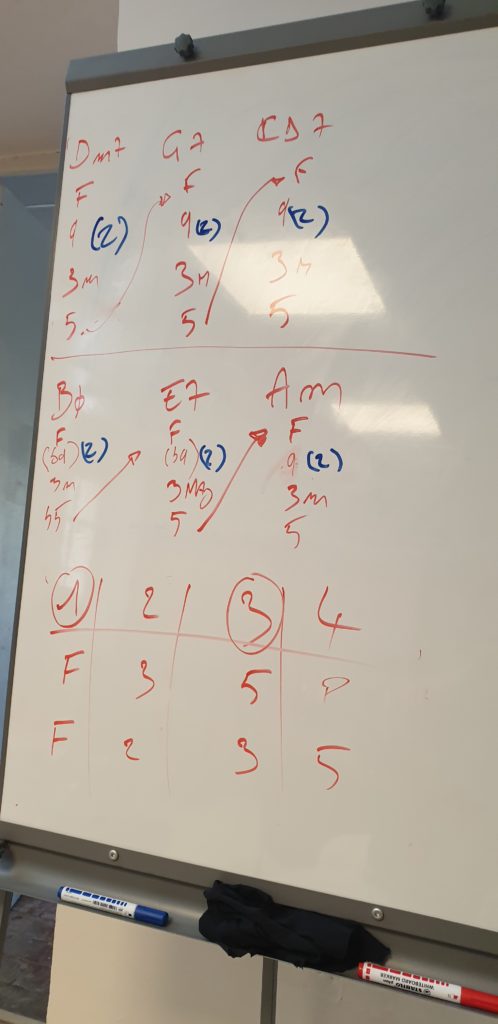 Dm7 G7 CΔ7
F F F
9 (2) 9 (2) 9 (2)
3m 3M 3M
5 5 5
Bø E7 Am
F F F
(b9) (2) (b9) (2) 9 (2)
3m 3Maj 3m
b5 5 5
1 2 3 4
F 3 5
F 2 3 5
STABILO plan
WHITEBOARD MARKER